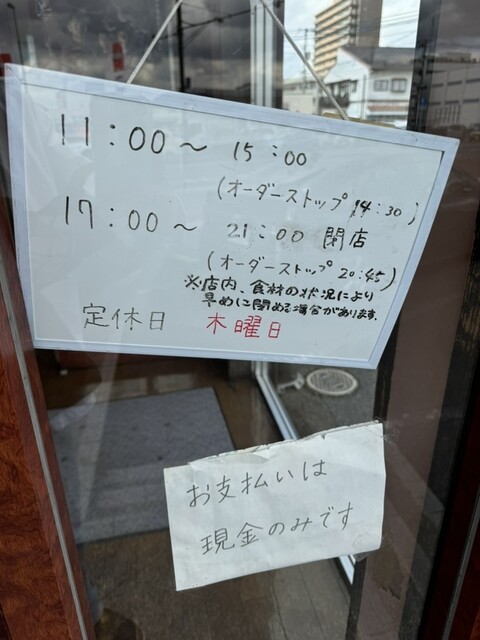 11:00～ 15:00
(オーダーストップ 14:30)
17:00～ 21:00 閉店
(オーダーストップ 20:45)
※店内、食材の状況により
早めに閉める場合があります。
定休日 木曜日
お支払いは
現金のみです